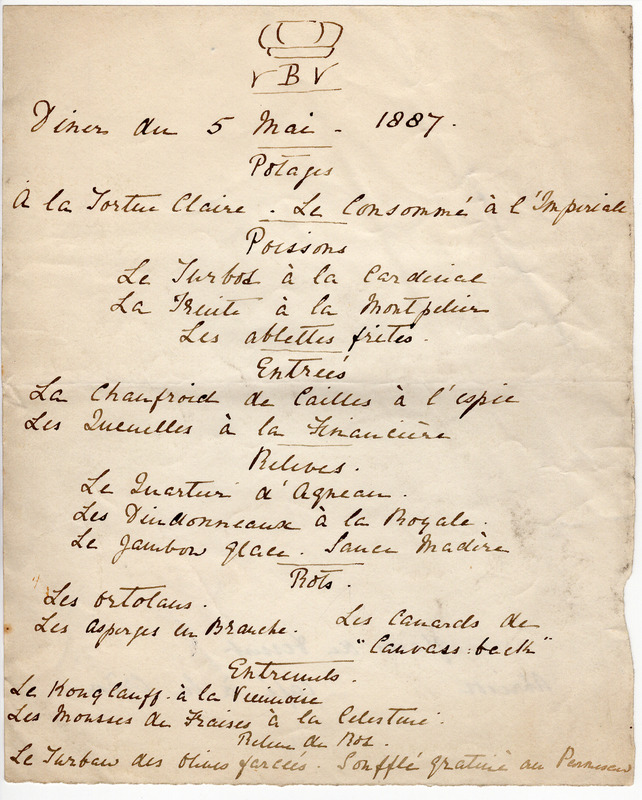 V B V
Diner du 5 Mai - 1887.
Potages
A la Tortue Claire . Le Consommé à l'Imperiale
Poissons
Le Turbot à la Cardinal
La Truite à la Montpelier
Les ablettes frites.
Entreés
La Chaufroid de Cailles à l'espic
Les Quenelles à la Financière
Relives.
Le Quartier d'Agneau.
Les Dindonneaux à la Royale.
Le Jambon glace. Sauce Madère
Rots.
Les Ortolans.
Les Asperges en Branche.
Les Canards de
"Canvass-back"
Entremets.
Le Konglauff à la Viennoise
Les Mousses de Fraises à la Celestine.
Releve de Rot.
Le Turban des Olives farcies. Soufflé gratiné au Parmesan